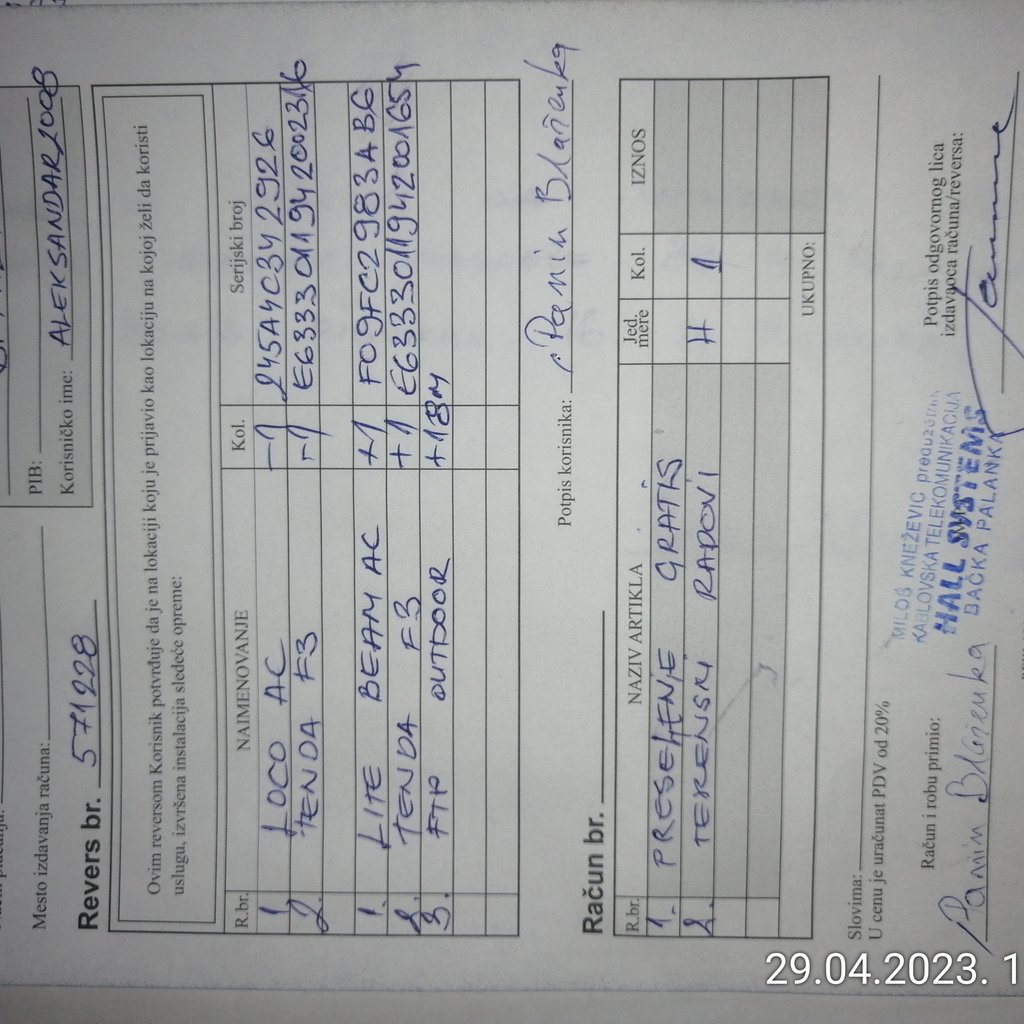 PIB:
Korisničko ime: ALEKSANDAR2008
Mesto izdavanja računa:
Revers br. 571228
Ovim reversom Korisnik potvrđuje da je na lokaciji koju je prijavio kao lokaciju na kojoj želi da koristi
uslugu, izvršena instalacija sledeće opreme:
R.br. NAIMENOVANJE Kol. Serijski broj
1. LOCO AC -1 245A4C342926
2. TENDA F3 -1 E6333011942002316
1. LITE BEAM AC +1 F09FC2983AB6
2. TENDA F3 +1 E6333011942001654
3. FTP OUTDOOR +18M
Potpis korisnika: Panin Blaženka
Račun br.
R.br. NAZIV ARTIKLA Jed. mere Kol. IZNOS
1. PRESELJENJE GRATIS
2. TERENSKI RADOVI H 1
UKUPNO:
Slovima:
U cenu je uračunat PDV od 20%
Račun i robu primio:
Panin Blaženka
MILOŠ KNEŽEVIĆ preduzetnik
KABLOVSKA TELEKOMUNIKACIJA
HALL SYSTEMS
BAČKA PALANKA
Potpis odgovornog lica
izdavaoca računa/reversa:
29.04.2023. 1